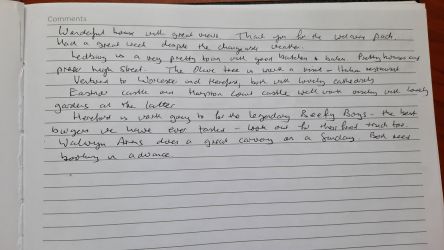 Comments
Wonderful house with great views. Thank you for the welcome pack.
Had a great week despite the changeable weather.
Ledbury is a very pretty town with good butchers & bakers. Pretty houses and
proper high street. The Olive tree is worth a visit - Italian restaurant
Ventured to Worcester and Hereford, both with lovely cathedrals
Eastnor castle and Hampton Court castle well worth visiting with lovely
gardens at the latter
Hereford is worth going to for the legendary Beefy Boys - the best
burgers we have ever tasted - look out for their food truck too.
Walwyn Arms does a great carvery on a Sunday. Both need
booking in advance.